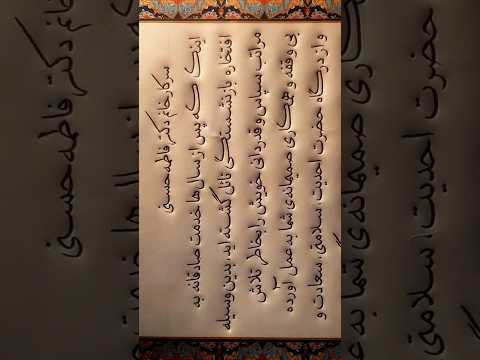 سرکار خانم دکتر فاطمه حسنی
اینک که پس از سال ها خدمت صادقانه به
افتخار بازنشستگی نائل گشته اید، بدین وسیله
مراتب سپاس و قدردانی خویش را بخاطر تلاش
بی وقفه و همکاری صمیمانه ی شما به عمل آورده
و از درگاه حضرت احدیت، سلامتی، سعادت و